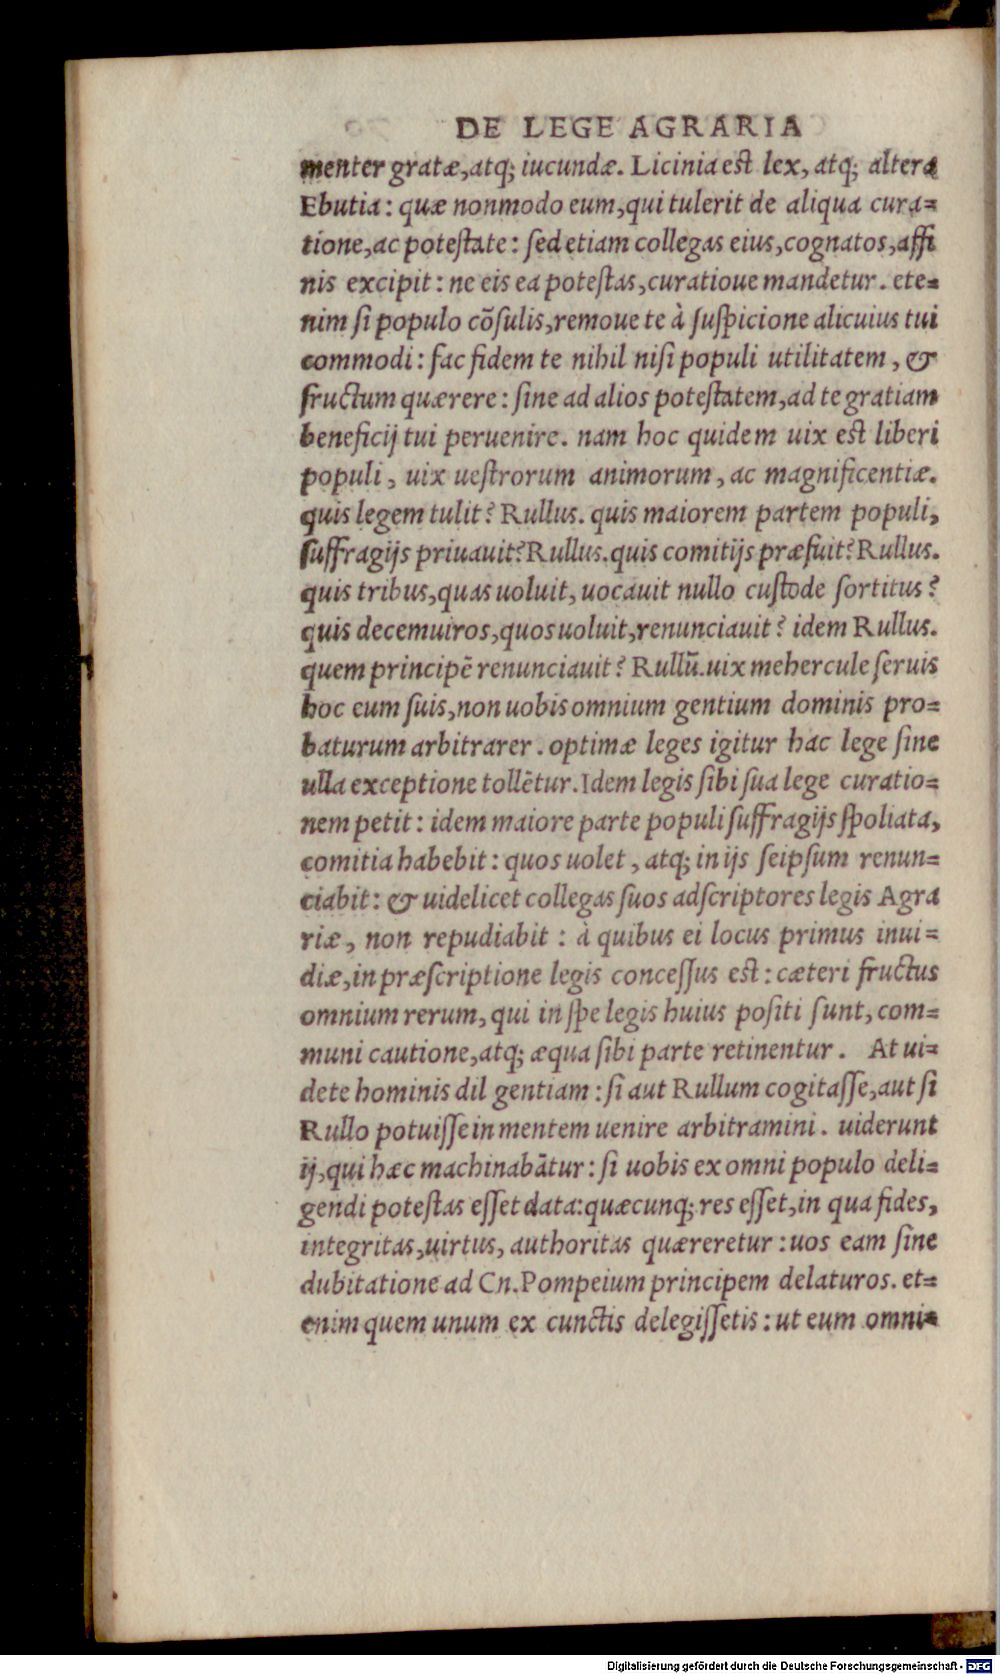 DE LEGE AGRARIA
menter gratæ, atq; iucundæ. Licinia est lex, atq; altera
Ebutia: quæ nonmodo eum, qui tulerit de aliqua cura=
tione, ac poteſtate: ſed etiam collegas eius, cognatos, affi
nis excipit: ne eis ea poteſtas, curatioue mandetur. ete=
nim ſi populo cõſulis, remoue te à ſuſpicione alicuius tui
commodi: fac fidem te nihil niſi populi utilitatem, &
fructum quærere: ſine ad alios poteſtatem, ad te gratiam
beneficij tui peruenire. nam hoc quidem uix eſt liberi
populi, uix ueſtrorum animorum, ac magnificentiæ.
quis legem tulit? Rullus. quis maiorem partem populi,
ſuffragijs priuauit? Rullus. quis comitijs præfuit? Rullus.
quis tribus, quas uoluit, uocauit nullo cuſtode ſortitus?
quis decemuiros, quos uoluit, renunciauit? idem Rullus.
quem principẽ renunciauit? Rullũ. uix mehercule ſeruis
hoc eum ſuis, non uobis omnium gentium dominis pro=
baturum arbitrarer. optimæ leges igitur hac lege ſine
ulla exceptione tollẽtur. Idem legis ſibi ſua lege curatio=
nem petit: idem maiore parte populi ſuffragijs ſpoliata,
comitia habebit: quos uolet, atq; in ijs ſeipſum renun=
ciabit: & uidelicet collegas ſuos adſcriptores legis Agra
riæ, non repudiabit: à quibus ei locus primus inui=
diæ, in præſcriptione legis conceſſus eſt: cæteri fructus
omnium rerum, qui in ſpe legis huius poſiti ſunt, com=
muni cautione, atq; æqua ſibi parte retinentur. At ui=
dete hominis dil gentiam: ſi aut Rullum cogitaſſe, aut ſi
Rullo potuiſſe in mentem uenire arbitramini. uiderunt
ij, qui hæc machinabãtur: ſi uobis ex omni populo deli=
gendi poteſtas eſſet data: quæcunq; res eſſet, in qua fides,
integritas, uirtus, authoritas quæreretur: uos eam ſine
dubitatione ad Cn. Pompeium principem delaturos. et=
enim quem unum ex cunctis delegiſſetis: ut eum omni=
Digitalisierung gefördert durch die Deutsche Forschungsgemeinschaft - DFG